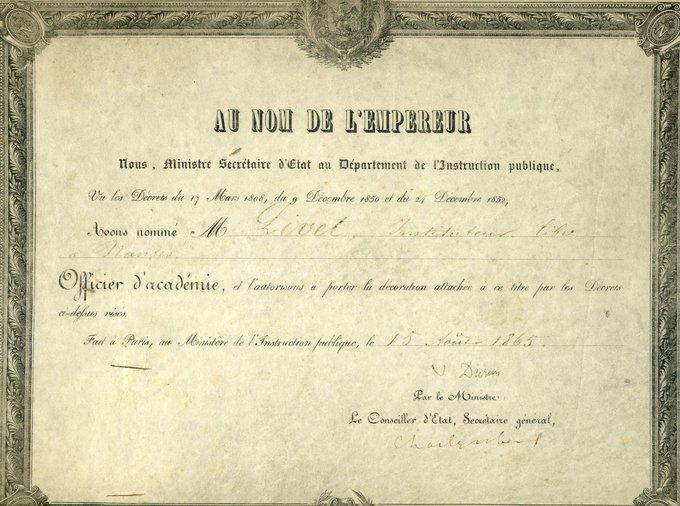 AU NOM DE L'EMPEREUR
Nous, Ministre Secrétaire d'Etat au Département de l'Instruction publique,
Vu les Décrets du 17 Mars 1808, du 9 Décembre 1850 et du 24 Décembre 1852,
Avons nommé M Livet, Instituteur libre
à Nantes,
Officier d'académie, et l'autorisons à porter la décoration attachée à ce titre par les Décrets
ci-dessus visés.
Fait à Paris, au Ministère de l'Instruction publique, le 15 Août 1865.
V Duruy
Par le Ministre:
Le Conseiller d'Etat, Secrétaire général,